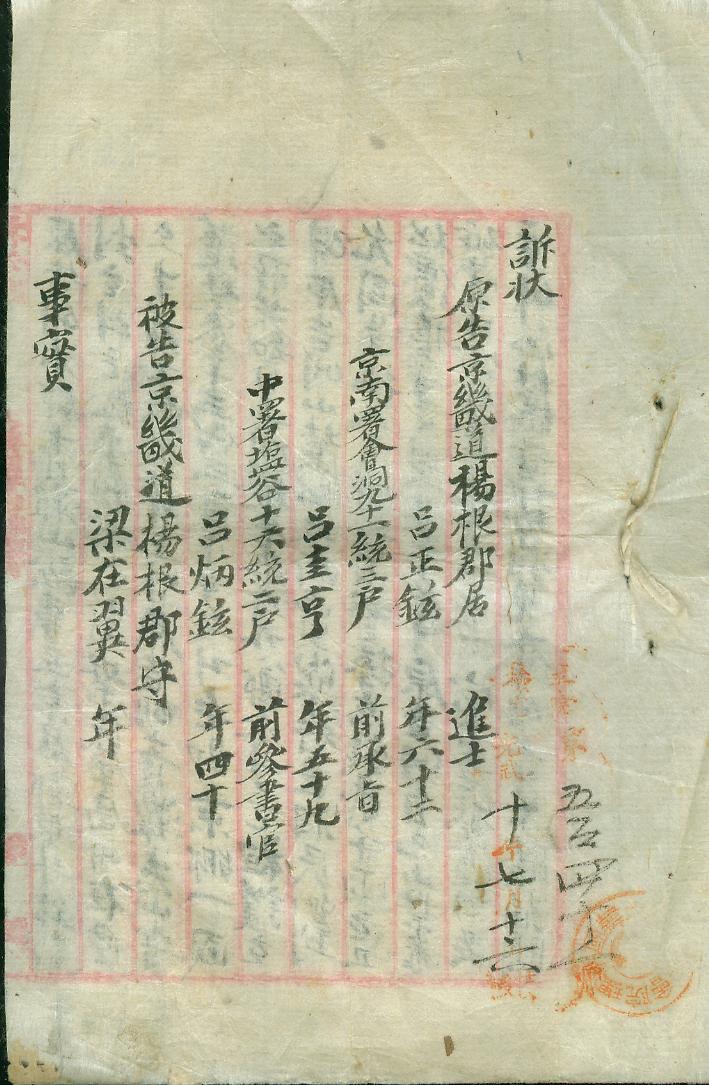 訴状
原告京畿道楊根郡居 進士
呂正鉉 年六十二
京南署會洞九十一統三戶 前承旨
呂圭亨 年五十九
中署塩谷十六統二戶 前參書官
呂炳鉉 年四十
被告京畿道楊根郡守
梁在翼 年
事實
光武
十年七月十六日